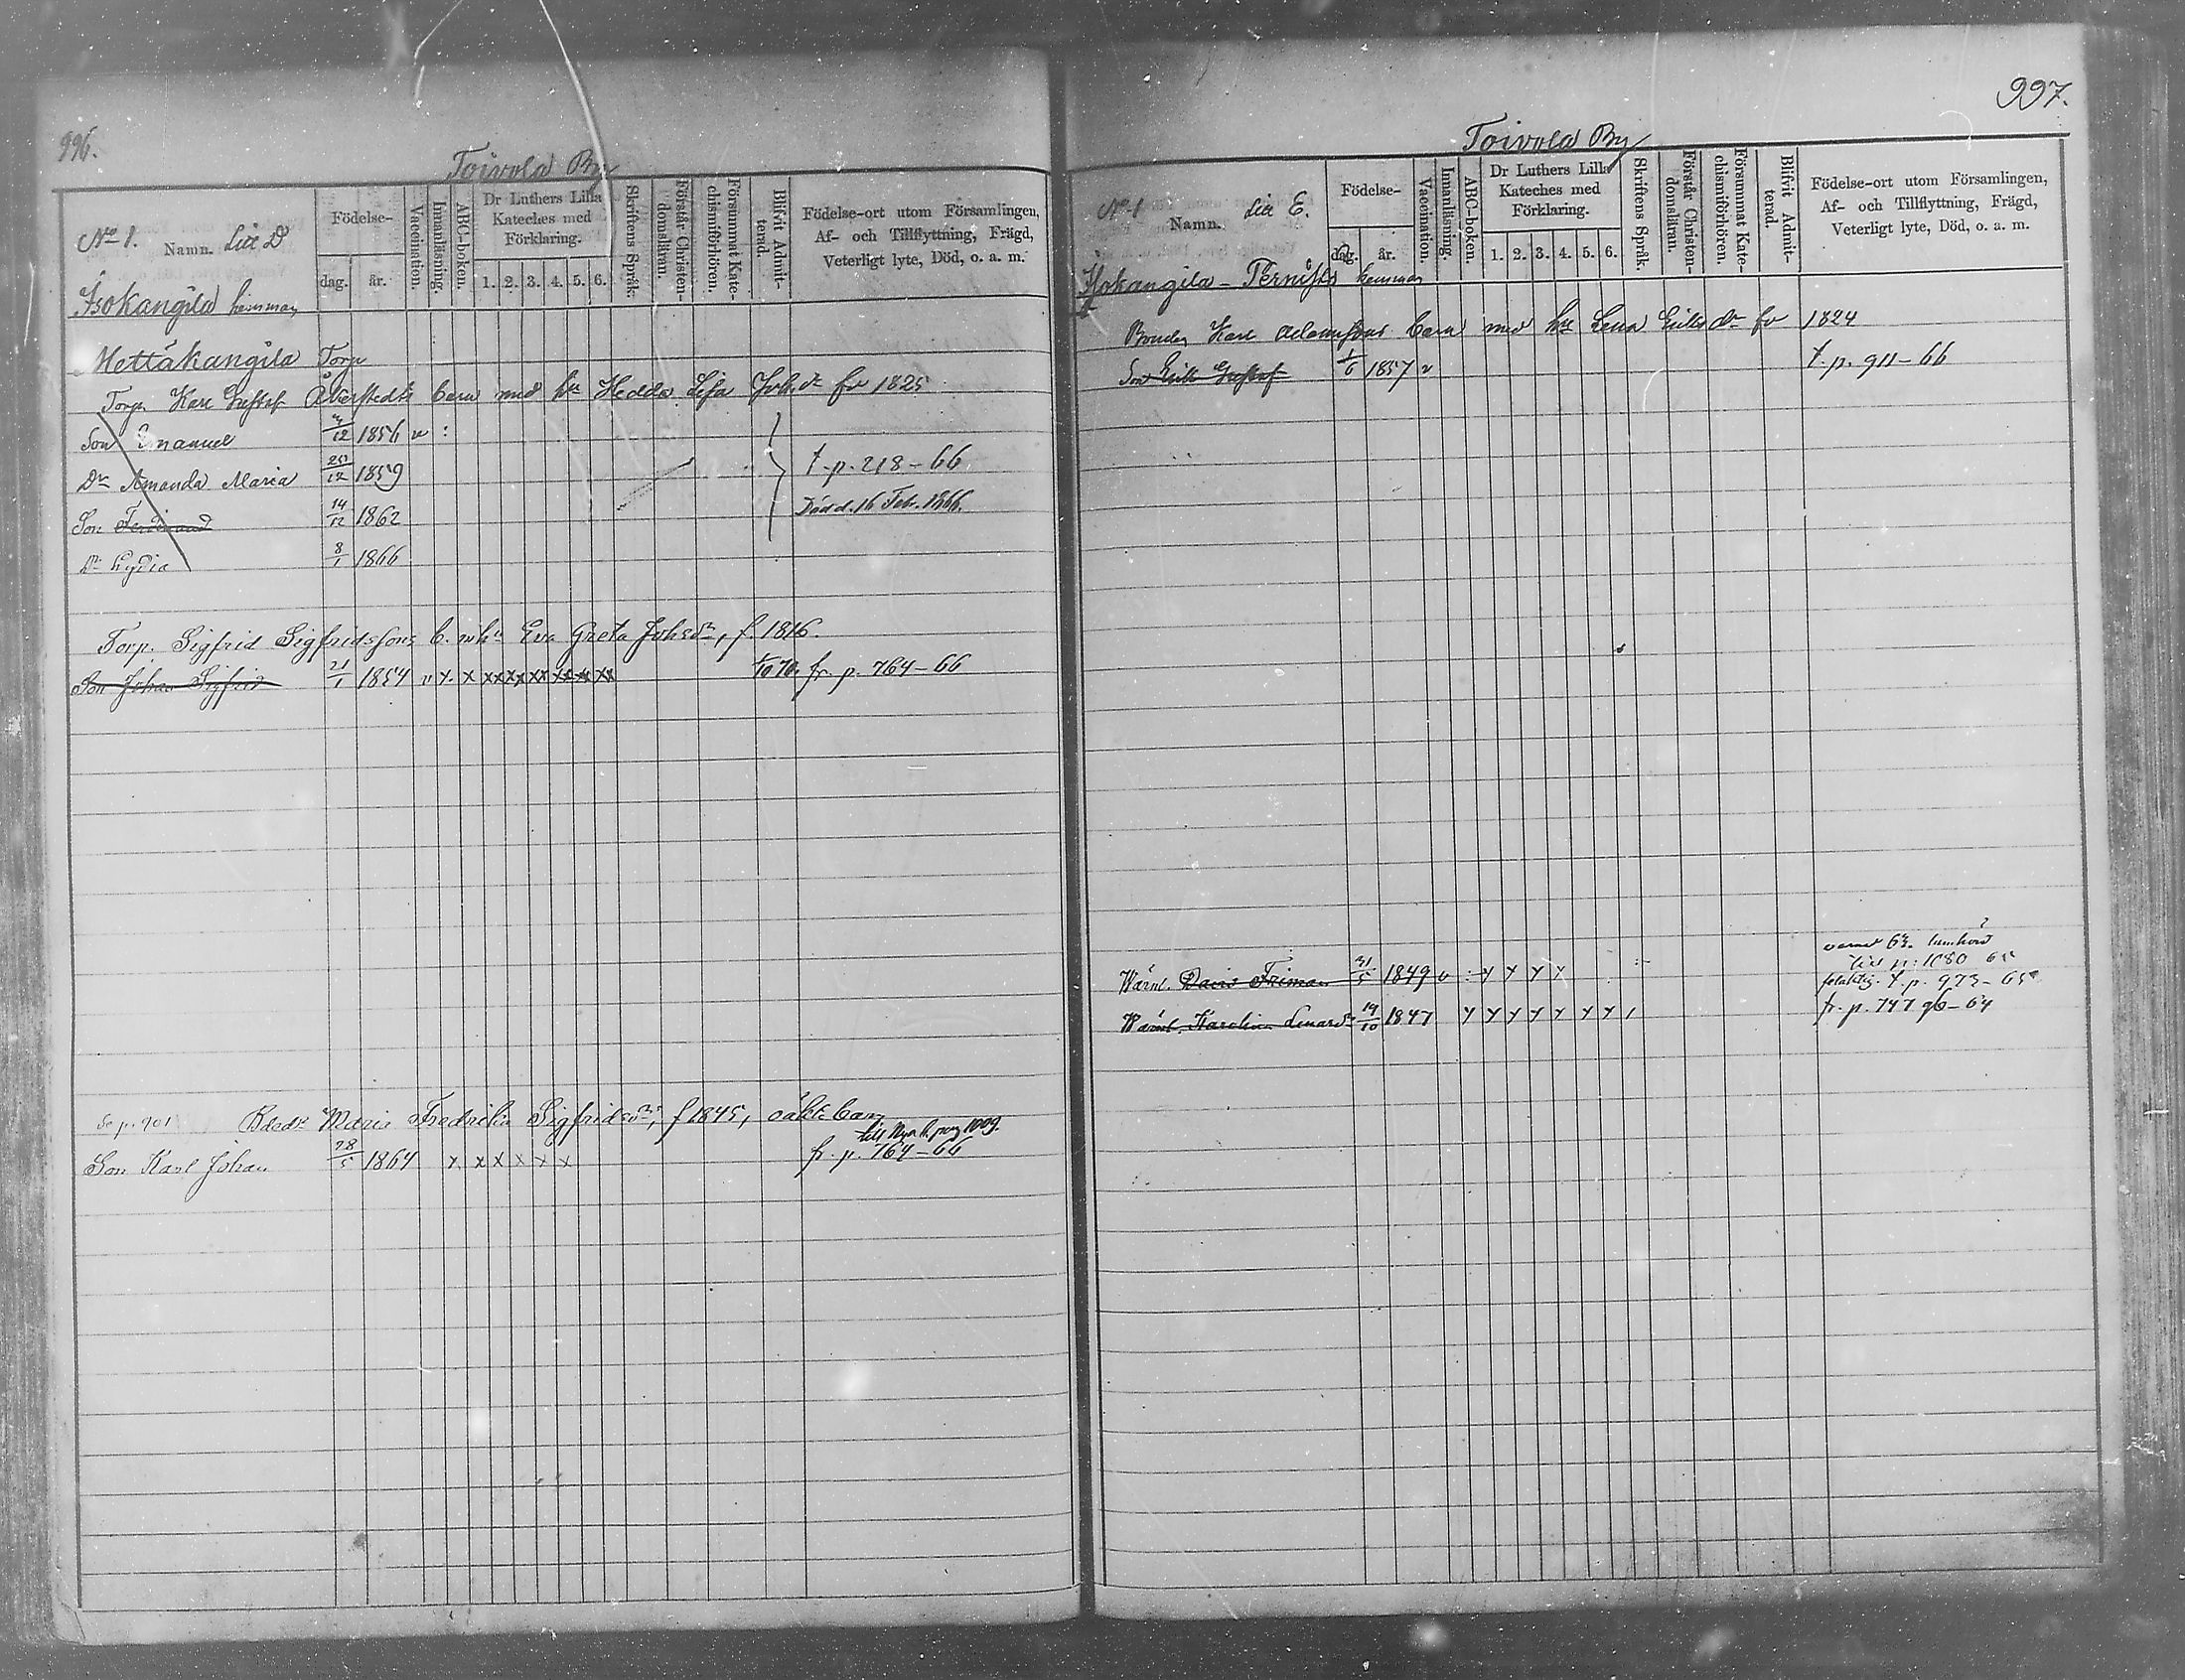 996.
Toivola By
No 1. Namn. Litt D
Födelse-
dag. år.
Vaccination.
Innanläsning.
ABC-boken.
Dr Luthers Lilla
Kateches med
Förklaring.
1. 2. 3. 4. 5. 6.
Skriftens Språk.
Förstår Christen-
domsläran.
Försummat Kate-
chismiförhören.
Blifvit Admit-
terad.
Födelse-ort utom Församlingen,
Af- och Tillflyttning, Frägd,
Veterligt lyte, Död, o. a. m.
Isokangila hemman
Mettäkangila Torp
Torp. Karl Gustaf barn med hu Hedda Lisa Joh.dr fr 1825
Son Emanuel /12 1856 v :
Dr Amanda Maria 25/12 1859 t. p. 218-66
Son Ferdinand 14/12 1862 Död d. 16 Feb. 1866.
Dr Lydia 8/1 1866
Torp. Sigfrid Sigfridssons b. m hu Eva Greta Johsdr, f. 1816.
Son Johan Sigfrid 21/1 1854 v x x xx xx xx xx xx xx fr. p. 764-66
Se p. 901 Maria Fredrika Sigfridsdrs, f 1845, oäkta barn
till Nya b. pag 1009.
Son Karl Johan 28/5 1864 x x x x x x fr. p. 764-66
997.
Toivola By
No 1 Namn. Litt E.
Födelse-
dag. år.
Vaccination.
Innanläsning.
ABC-boken.
Dr Luthers Lilla
Kateches med
Förklaring.
1. 2. 3. 4. 5. 6.
Skriftens Språk.
Förstår Christen-
domsläran.
Försummat Kate-
chismiförhören.
Blifvit Admit-
terad.
Födelse-ort utom Församlingen,
Af- och Tillflyttning, Frägd,
Veterligt lyte, Död, o. a. m.
Isokangila - hemman
Bonden Karl Adamssons barn med hu Lena Eriksdr fr 1824
Son Erik Gustaf 1/6 1857 v t. p. 911-66
till p: 1080 65
Wärnl. David Friman 31/5 1849 v : y y y y t. p. 973-65
Wärnl. Karolina Lenardr 19/10 1847 y y y y y y y / fr. p. 747